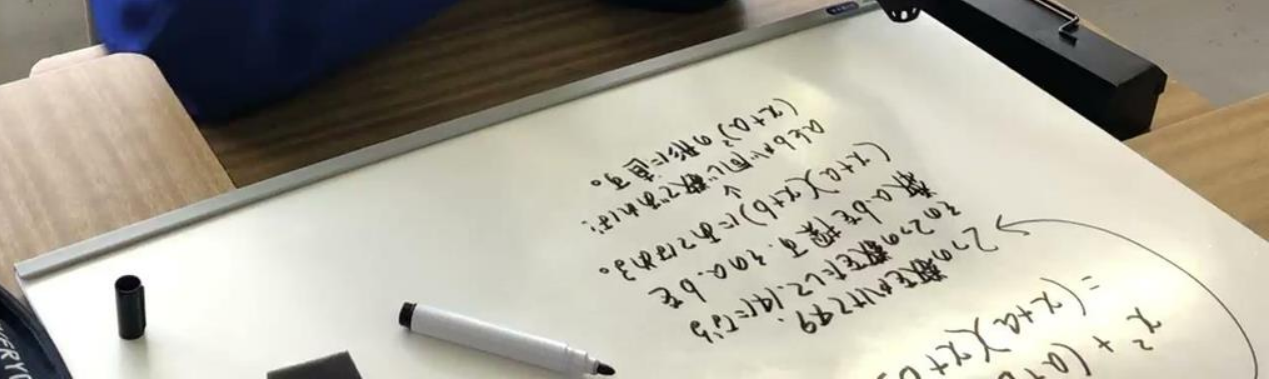 x² + (a+b
= (x+a)(x+b
2つの数をかけて49、
その2つの数をたして、14になる
数a.bを探す。そのa.bを
(x+a)(x+b)にあてはめる。
↓
aとbが同じ数であれば、
(x+a)²の形に直す。